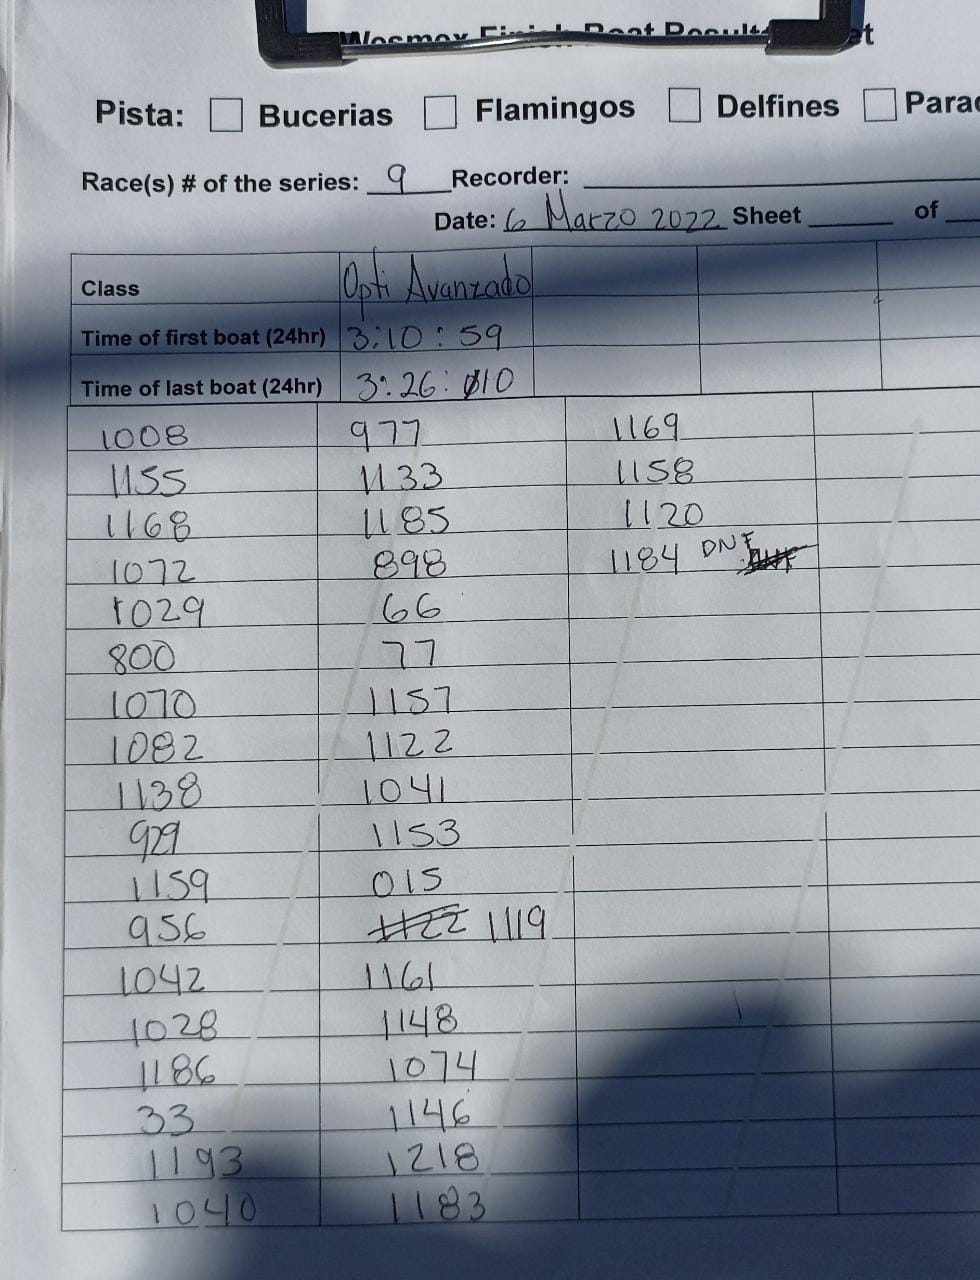 Pista: Bucerias Flamingos Delfines
Race(s) # of the series: 9 Recorder:
Date: 6 Marzo 2022 Sheet of
Class Opti Avanzado
Time of first boat (24hr) 3:10:59
Time of last boat (24hr) 3:26:10
1008 977 1169
1155 1133 1158
1168 1185 1120
1072 898 1184 DNF
1029 66
800 77
1070 1157
1082 1122
1138 1041
929 1153
1159 015
956 1122 1119
1042 1161
1028 1148
1186 1074
33 1146
1193 1218
1040 1183